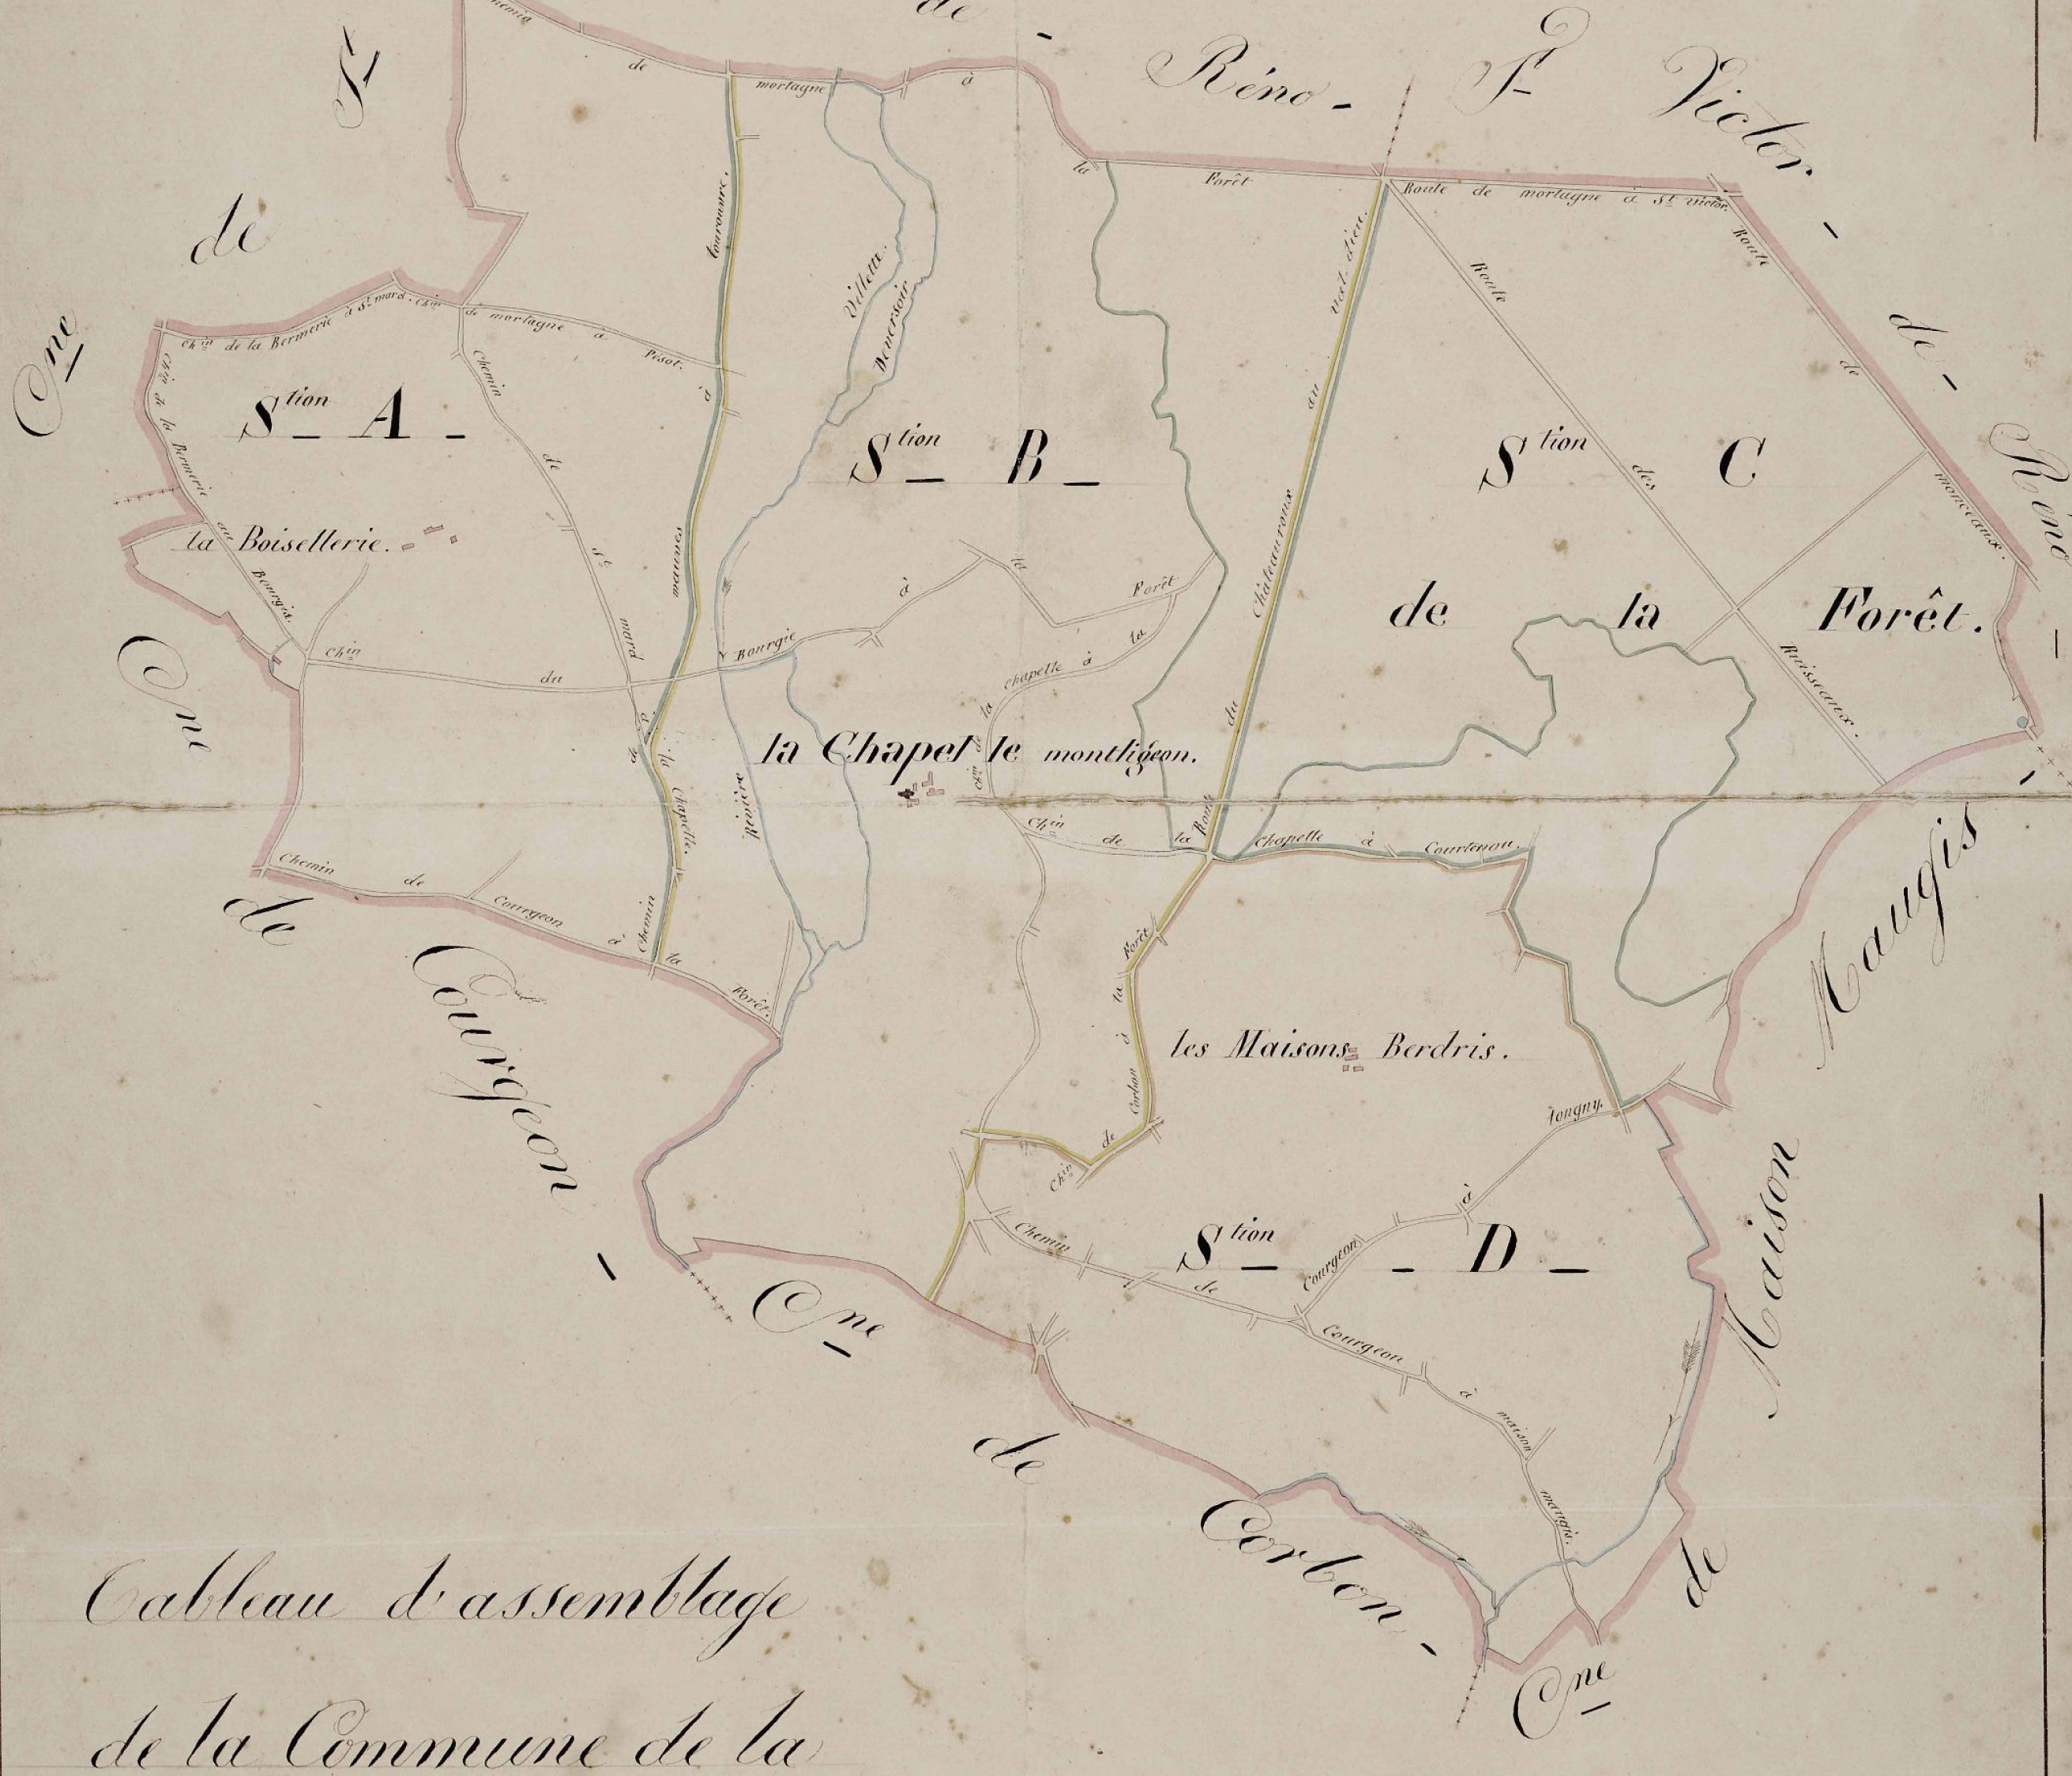 de -
Réno - St Victor -
de - Réno -
Cne de St
Chemin de mortagne à la Forêt
Route de mortagne à St Victor.
Route de monceaux.
Route des Ruisseaux.
Route du Châteauroux au val-dieu.
Chin de la Bermerie à St mard.
Chin de mortagne à Pesot.
Chin de la Bermerie au Bourgis.
Chemin de St mard à la Chapelle.
Chemin de mauves à tourouvre.
Villette.
Deversoir
Stion A -
Stion B -
Stion C
de la Forêt.
la Boisellerie.
Chin du Bourgie à la Forêt
Chin de la Chapelle à la Forêt
la Chapelle montligeon.
Rivière
Chin de la Chapelle à Courtenou.
Chemin de Courgeon à la Forêt.
Cne de Courgeon -
les Maisons Berdris.
Chin de Corbon à la Forêt
Courgeon à longny.
Stion - D -
Chemin de Courgeon à maison maugis.
Cne de Corbon -
Cne de Maison Maugis -
Tableau d'assemblage
de la Commune de la